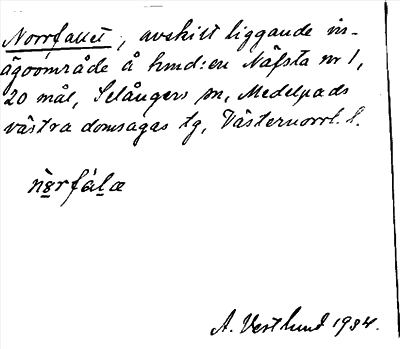 Norrfallet, avskilt liggande in-
ägoområde å hmd:en Näfsta nr 1,
20 mål, Selångers sn, Medelpads
västra domsagas tg, Västernorrl. l.
nòrfálæ
A. Vestlund 1934.